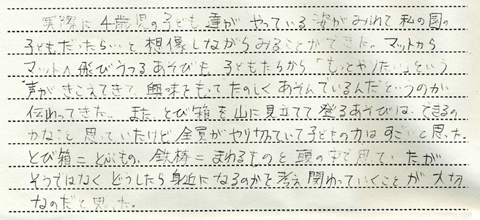 実際に4歳児の子ども達がやっている姿がみれて私の園の
子どもだったら…と想像しながらみることができた。マットから
マットへ飛びうつるあそびも、子どもたちから「もっとやりたい」という
声がきこえてきて、興味をもってたのしくあそんでいるんだというのが
伝わってきた。また、とび箱を山に見立てて登るあそびは、できるの
かな…と思っていたけど全員がやり切っていて子どもの力はすごいと思った。
とび箱=とぶもの、鉄棒=まわるものと頭の中で思っていたが
そうではなく、どうしたら身近になるのかを考え関わっていくことが大切
なのだと思った。